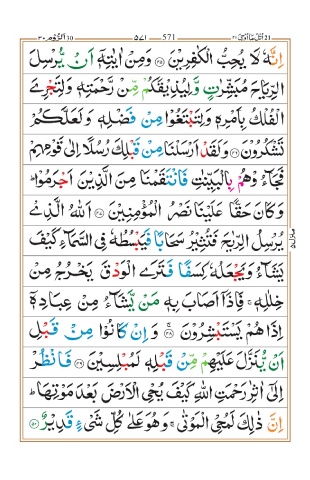 اِنَّهٗ لَا يُحِبُّ الْكٰفِرِيْنَ ۝۴۵ وَمِنْ اٰيٰتِهٖٓ اَنْ يُّرْسِلَ
الرِّيَاحَ مُبَشِّرٰتٍ وَّلِيُذِيْقَكُمْ مِّنْ رَّحْمَتِهٖ وَلِتَجْرِيَ
الْفُلْكُ بِاَمْرِهٖ وَلِتَبْتَغُوْا مِنْ فَضْلِهٖ وَلَعَلَّكُمْ
تَشْكُرُوْنَ ۝۴۶ وَلَقَدْ اَرْسَلْنَا مِنْ قَبْلِكَ رُسُلًا اِلٰى قَوْمِهِمْ
فَجَآءُوْهُمْ بِالْبَيِّنٰتِ فَانْتَقَمْنَا مِنَ الَّذِيْنَ اَجْرَمُوْا ؕ
وَكَانَ حَقًّا عَلَيْنَا نَصْرُ الْمُؤْمِنِيْنَ ۝۴۷ اَللّٰهُ الَّذِيْ
يُرْسِلُ الرِّيٰحَ فَتُثِيْرُ سَحَابًا فَيَبْسُطُهٗ فِي السَّمَآءِ كَيْفَ
يَشَآءُ وَيَجْعَلُهٗ كِسَفًا فَتَرَى الْوَدْقَ يَخْرُجُ مِنْ
خِلٰلِهٖ ۚ فَاِذَآ اَصَابَ بِهٖ مَنْ يَّشَآءُ مِنْ عِبَادِهٖٓ
اِذَا هُمْ يَسْتَبْشِرُوْنَ ۝۴۸ وَاِنْ كَانُوْا مِنْ قَبْلِ
اَنْ يُّنَزَّلَ عَلَيْهِمْ مِّنْ قَبْلِهٖ لَمُبْلِسِيْنَ ۝۴۹ فَانْظُرْ
اِلٰٓى اٰثٰرِ رَحْمَتِ اللّٰهِ كَيْفَ يُحْيِ الْاَرْضَ بَعْدَ مَوْتِهَا ؕ
اِنَّ ذٰلِكَ لَمُحْيِ الْمَوْتٰى ۚ وَهُوَ عَلٰى كُلِّ شَيْءٍ قَدِيْرٌ ۝۵۰